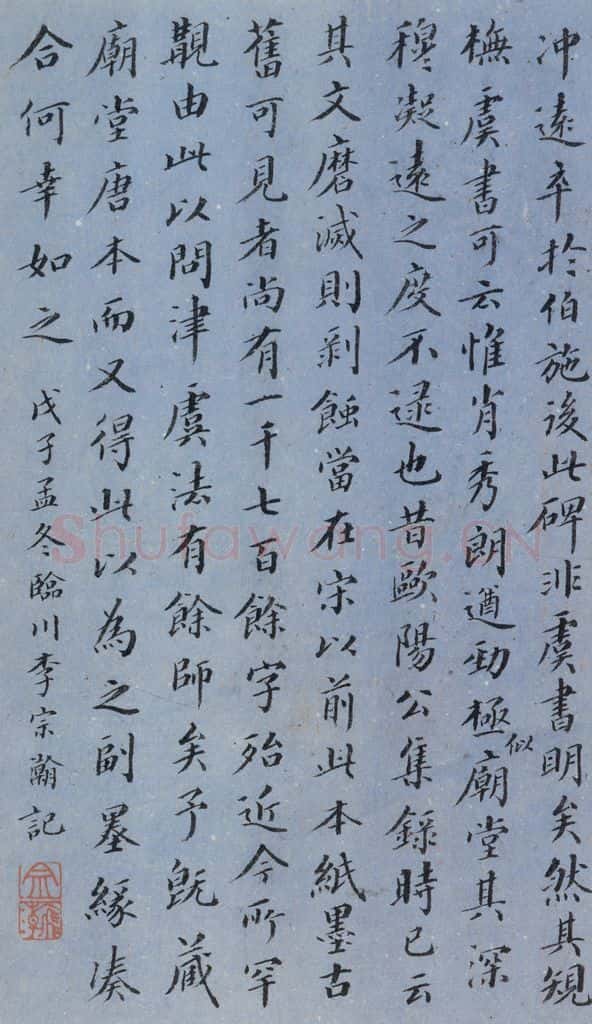 冲遠卒於伯施後此碑非虞書明矣然其規
橅虞書可云惟肖秀朗遒勁極似廟堂其深
穆凝遠之度不逮也昔歐陽公集錄時已云
其文磨滅則剝蝕當在宋以前此本紙墨古
舊可見者尚有一千七百餘字殆近今所罕
覯由此以問津虞法有餘師矣予既藏
廟堂唐本而又得此以為之副墨緣湊
合何幸如之 戊子孟冬臨川李宗瀚記
Shufawang.CN